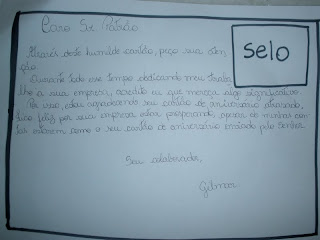 Caro Sr. Patrão
selo
Através deste humilde cartão, peço sua aten
ção.
Durante todo esse tempo dedicando meu traba
lho a sua empresa, acredito eu que mereça algo significativo.
Por isso, estou agradecendo seu cartão de aniversário atrasado,
fico feliz por sua empresa estar prosperando, apesar de minhas con
tas estarem como o seu cartão de aniversário enviado pelo senhor.
Seu colaborador,
Gilmar